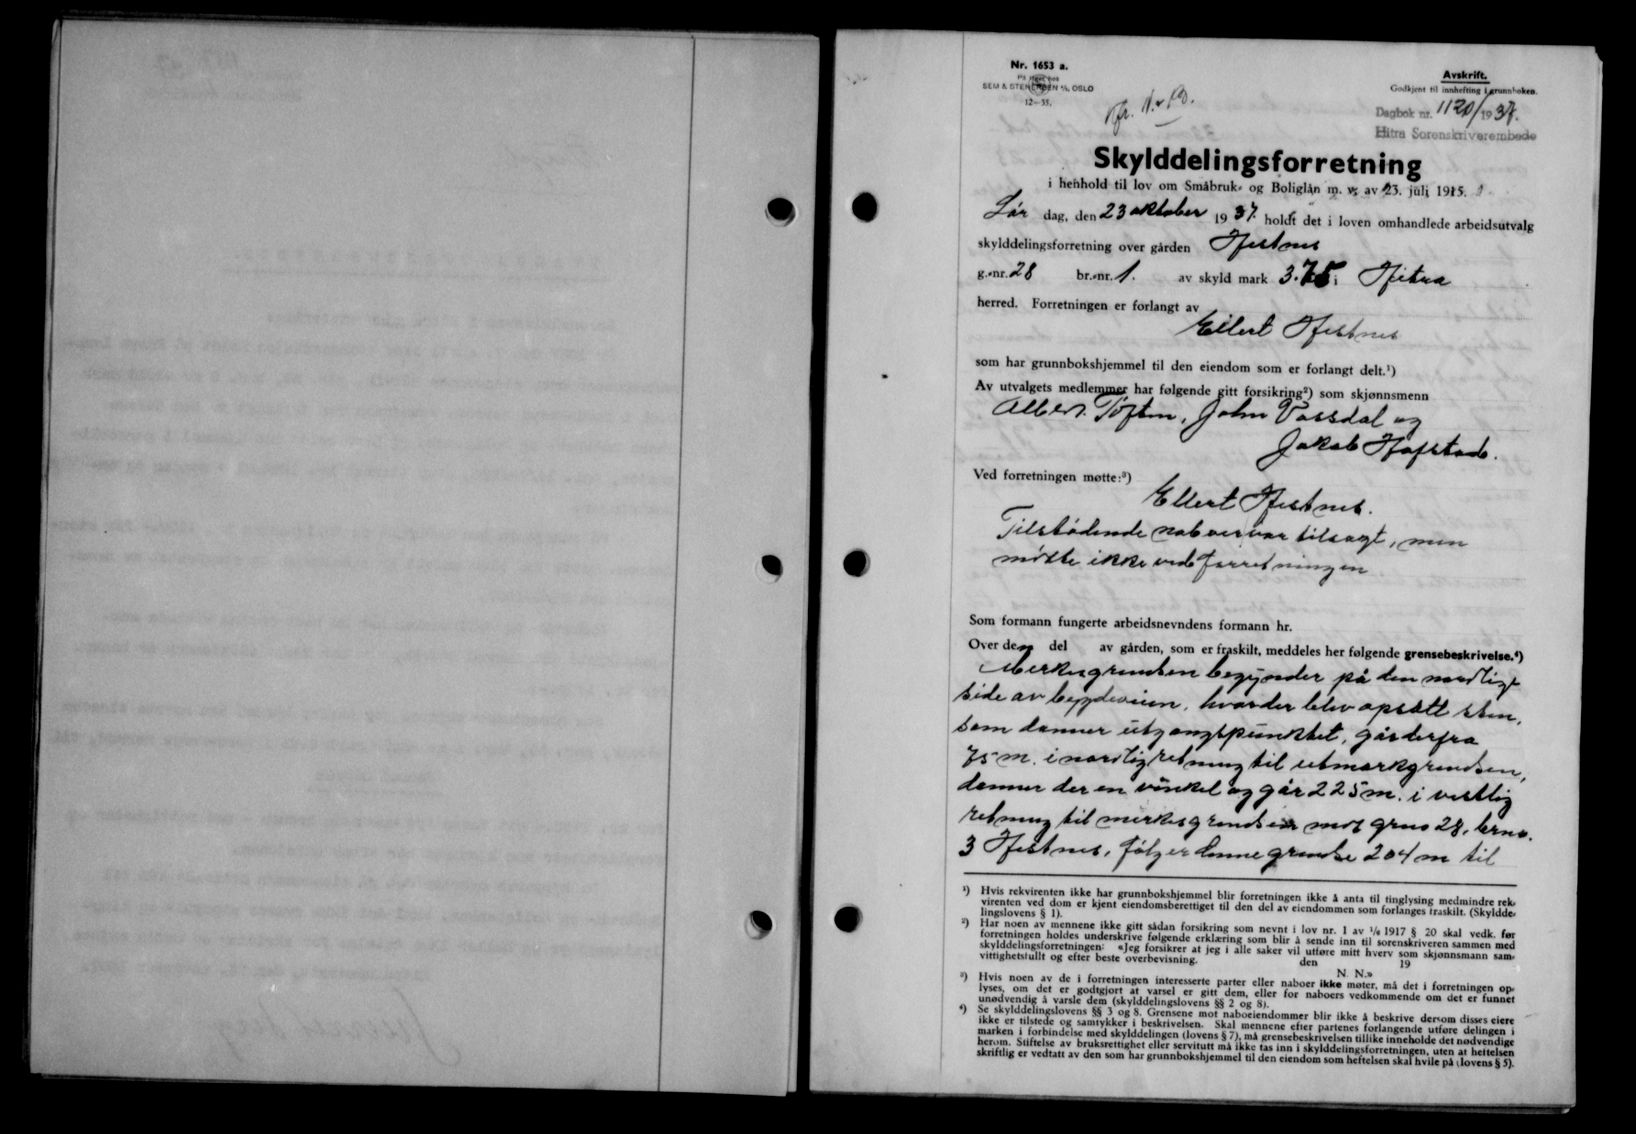 Nr. 1653 a.
På lager hos
SEM & STENERSEN A/S, OSLO
12—35.
Avskrift.
Godkjent til innhefting i grunnboken.
Dagbok nr. 1120/1937.
Hitra Sorenskriverembede
Skylddelingsforretning
i henhold til lov om Småbruk- og Boliglån m. v. av 23. juli 1915.
Lör dag, den 23 oktober 1937. holdt det i loven omhandlede arbeidsutvalg
skylddelingsforretning over gården Hestnes
g.-nr. 28 br.-nr. 1. av skyld mark 3.75 i Hitra
herred. Forretningen er forlangt av
Ellert Hestnes
som har grunnbokshjemmel til den eiendom som er forlangt delt.¹)
Av utvalgets medlemmer har følgende gitt forsikring²) som skjønnsmenn
Albert Toften, John Vassdal og
Jakob Hafstad.
Ved forretningen møtte:³)
Ellert Hestnes.
Tilstödende naboer var tilsagt, men
mötte ikke ved forretningen
Som formann fungerte arbeidsnevndens formann hr.
Over den del av gården, som er fraskilt, meddeles her følgende grensebeskrivelse.⁴)
Merkesgrendsen begynder på den nordlige
side av bygdeveien, hvor der blev opsatt sten,
som danner utgangspunktet, går derfra
75 m. i nordlig retning til utmarkgrendsen,
danner der en vinkel og går 225 m. i vestlig
retning til merkesgrendsen mot grno 28, brno.
3 Hestnes, fölger denne grendse 204 m til
¹) Hvis rekvirenten ikke har grunnbokshjemmel blir forretningen ikke å anta til tinglysing medmindre rek-
virenten ved dom er kjent eiendomsberettiget til den del av eiendommen som forlanges fraskilt. (Skyldde-
lingslovens § 1).
²) Har noen av mennene ikke gitt sådan forsikring som nevnt i lov nr. 1 av 1/6 1917 § 20 skal vedk. før
forretningen holdes underskrive følgende erklæring som blir å sende inn til sorenskriveren sammen med
skylddelingsforretningen: «Jeg forsikrer at jeg i alle saker vil utføre mitt hverv som skjønnsmann sam-
vittighetsfullt og efter beste overbevisning.
den 19
N. N.»
³) Hvis noen av de i forretningen interesserte parter eller naboer ikke møter, må det i forretningen op-
lyses, om det er godtgjort at varsel er gitt dem, eller for naboers vedkommende om det er funnet
unødvendig å varsle dem (skylddelingslovens §§ 2 og 8).
⁴) Se skylddelingslovens §§ 3 og 8. Grensene mot naboeiendommer blir ikke å beskrive dersom disses eiere
ikke er tilstede og samtykker i beskrivelsen. Skal mennene efter partenes forlangende utføre delingen i
marken i forbindelse med skylddelingen (lovens § 7), må grensebeskrivelsen tillike inneholde det nødvendige
herom. Stiftelse av bruksrettighet eller servitutt må ikke tas inn i skylddelingsforretningen, uten at heftelsen
skriftlig er vedtatt av den som har grunnbokshjemmel til den eiendom som heftelsen skal hvile på (lovens § 5).